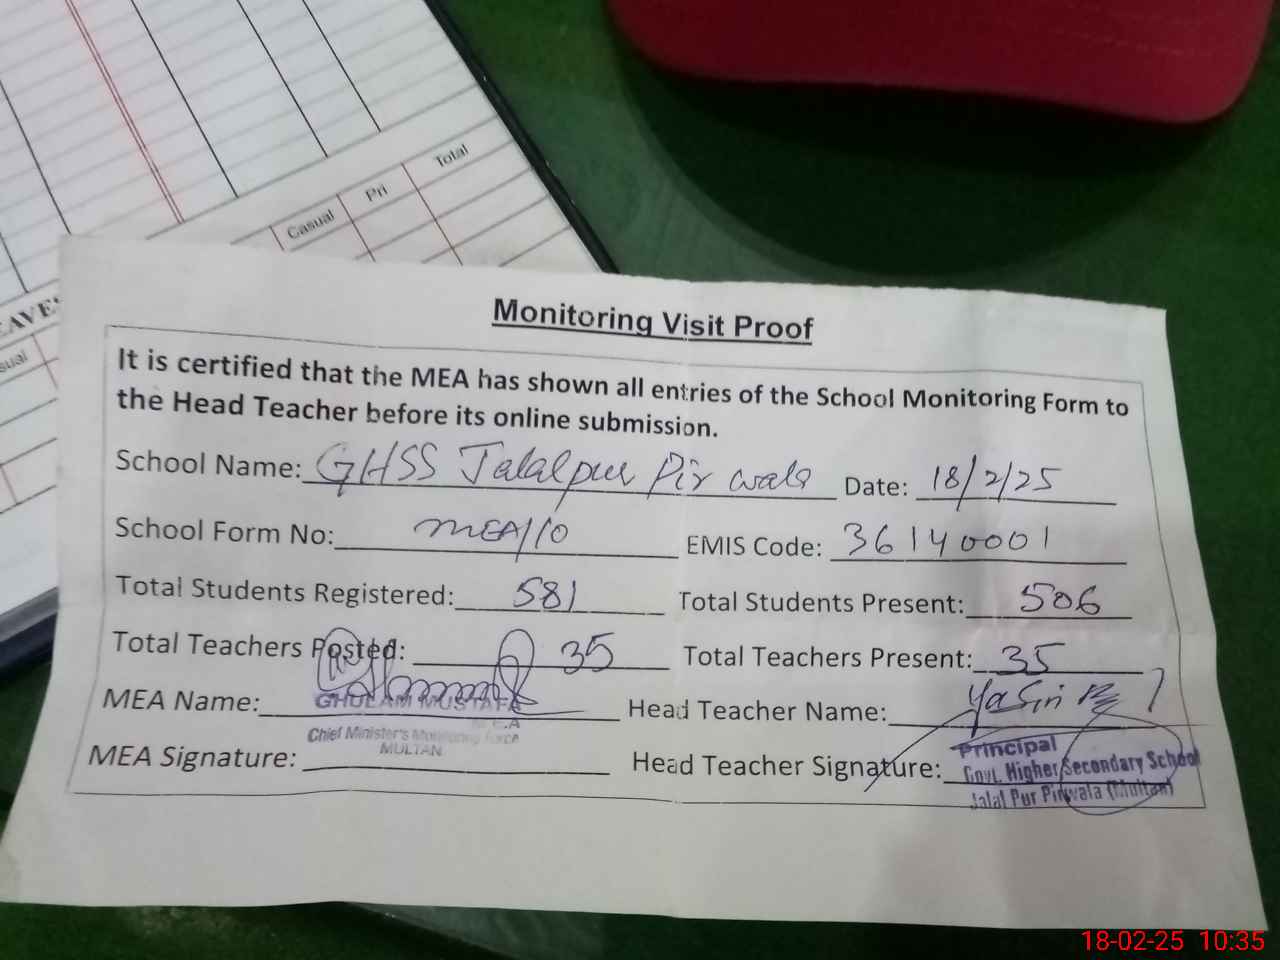 Total
Pri
Casual
LEAVES
Casual
Monitoring Visit Proof
It is certified that the MEA has shown all entries of the School Monitoring Form to
the Head Teacher before its online submission.
School Name: GHSS Jalalpur Pir wala Date: 18/2/25
School Form No: MEA/10 EMIS Code: 36140001
Total Students Registered: 581 Total Students Present: 506
Total Teachers Posted: 35 Total Teachers Present: 35
MEA Name: GHULAM MUSTAFA Head Teacher Name: Yasin
MEA
Chief Minister's Monitoring Force
MULTAN
MEA Signature: Head Teacher Signature:
Principal
Govt. Higher Secondary School
Jalal Pur Pirwala (Multan)
18-02-25 10:35